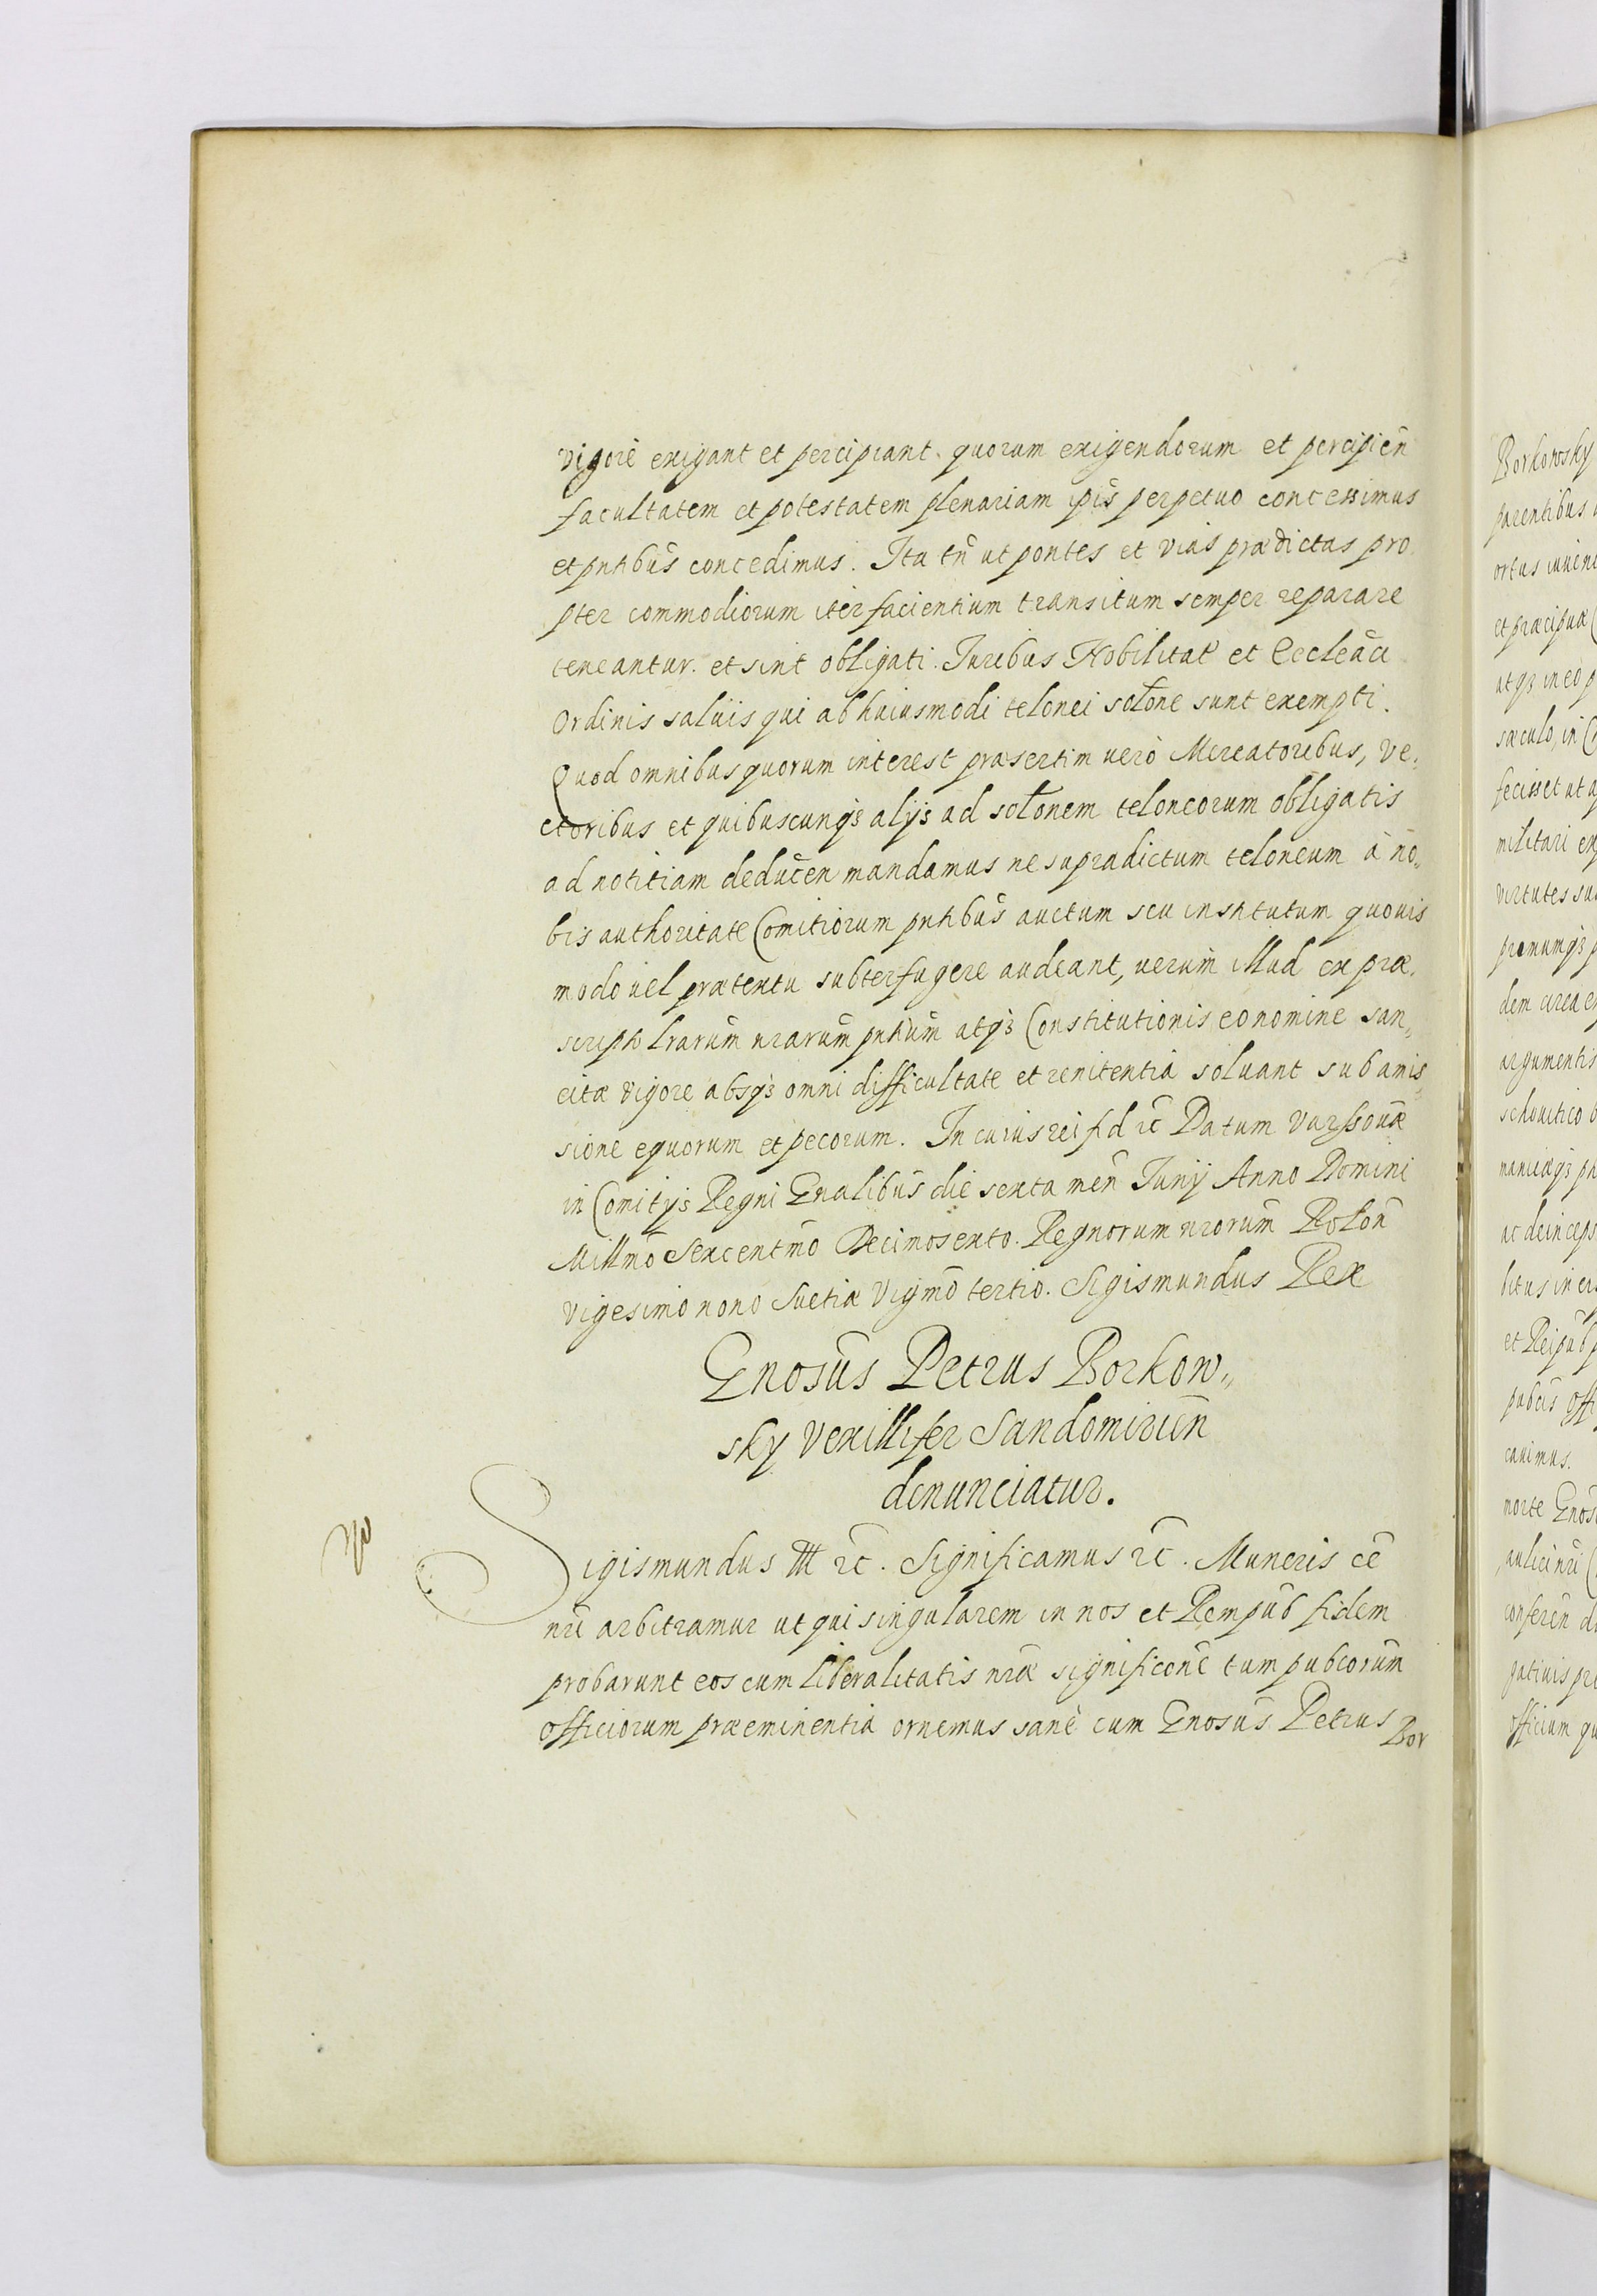 vigore exigant et percipiant. quorum exigendorum et percipień
facultatem et potestatem plenariam ip̄is perpetuo concessimus
et pntibūs concedimus. Ita tn̄ ut pontes et vias prædictas pro
pter commodiorum iter facientium transitum semper reparare
teneantur. et sint obligati. Juribus Nobilitat et Eccleāci
Ordinis saluis qui ab huiusmodi telonei soltōne sunt exempti.
Quod omnibus quorum interest præsertim uerò Mercatoribus, Ve,
ctoribus et quibuscunq3 alijs ad soltōnem teloneorum obligatis
ad notitiam deducēn mandamus ne supradictum teloneum à no,
bis authoritate Comitiorum pntibūs auctum seu institutum quouis
modo uel prætextu subterfugere audeant, uerùm illud ex præ,
scripto lrarum̄ nrarum̄ pntium̄ atq3 Constitutionis eo nomine san,
citæ vigore absq3 omni difficultate et renitentia soluant sub amis,
sione equorum et pecorum. In cuius rei fid rc̄ Datum Varssouiæ
in Comitijs Regni Gnalibūs die sexta men̄ Junij Anno Domini
Millmō Sexcentmō Decimosexto. Regnorum nrorum̄ Polon̄
vigesimo nono Suetiæ Vigmō tertio. Sigismundus Rex
Gnosūs Petrus Borkow,,
sky Vexillifer Sandomirien̄
denunciatur.
Sigismundus III rc̄. Significamus rc̄. Muneris eē
nri̅ arbitramur ut qui singularem in nos et Rempub̄ fidem
probarunt eos cum liberalitatis nrǣ significone̅ tum pubcorum̄
officiorum præeminentia ornemus sanè cum Gnosūs Petrus
Bor
Borkowsky
parentibus
ortus
et præcipuæ
atq3 in eo
sæculo, in
fecisset ut
militari
virtutes
dem circa
argumentis
ac deinceps
et Reipub̄
cauimus.
morte Gnos
conferen̄
officium